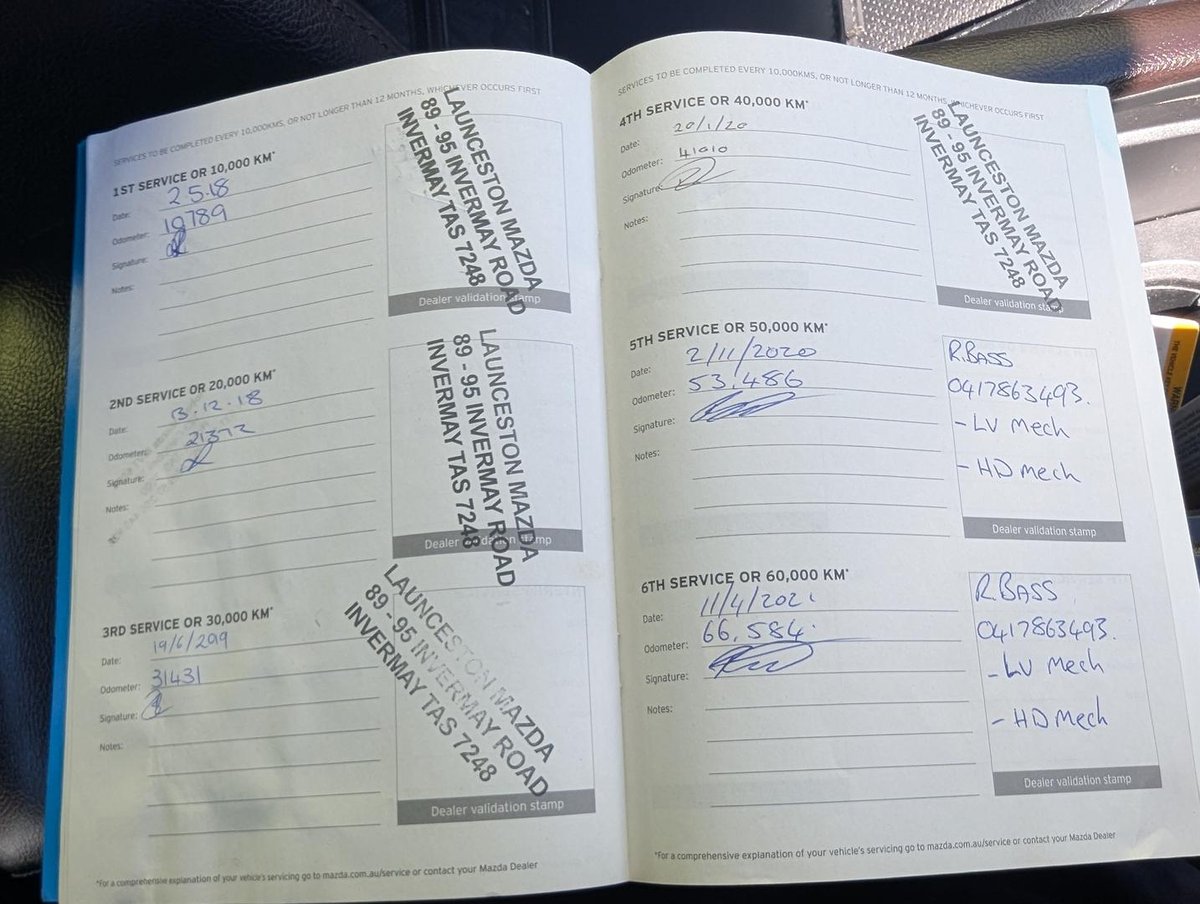 SERVICES TO BE COMPLETED EVERY 10,000KMS, OR NOT LONGER THAN 12 MONTHS, WHICHEVER OCCURS FIRST
1ST SERVICE OR 10,000 KM*
Date: 2.5.18
Odometer: 10789
Signature:
Notes:
LAUNCESTON MAZDA
89 - 95 INVERMAY ROAD
INVERMAY TAS 7248
Dealer validation stamp
2ND SERVICE OR 20,000 KM*
Date: 13.12.18
Odometer: 21372
Signature:
Notes:
LAUNCESTON MAZDA
89 - 95 INVERMAY ROAD
INVERMAY TAS 7248
Dealer validation stamp
3RD SERVICE OR 30,000 KM*
Date: 19/6/2019
Odometer: 31431
Signature:
Notes:
LAUNCESTON MAZDA
89 - 95 INVERMAY ROAD
INVERMAY TAS 7248
Dealer validation stamp
*For a comprehensive explanation of your vehicle's servicing go to mazda.com.au/service or contact your Mazda Dealer
SERVICES TO BE COMPLETED EVERY 10,000KMS, OR NOT LONGER THAN 12 MONTHS, WHICHEVER OCCURS FIRST
4TH SERVICE OR 40,000 KM*
Date: 20/1/20
Odometer: 41010
Signature:
Notes:
LAUNCESTON MAZDA
89 - 95 INVERMAY ROAD
INVERMAY TAS 7248
Dealer validation stamp
5TH SERVICE OR 50,000 KM*
Date: 2/11/2020
Odometer: 53.486
Signature:
Notes:
R.BASS
0417863493.
- LV Mech
- HD Mech
Dealer validation stamp
6TH SERVICE OR 60,000 KM*
Date: 11/4/2021
Odometer: 66,584.
Signature:
Notes:
R.BASS
0417863493.
- LV Mech
- HD Mech
Dealer validation stamp
*For a comprehensive explanation of your vehicle's servicing go to mazda.com.au/service or contact your Mazda Dealer